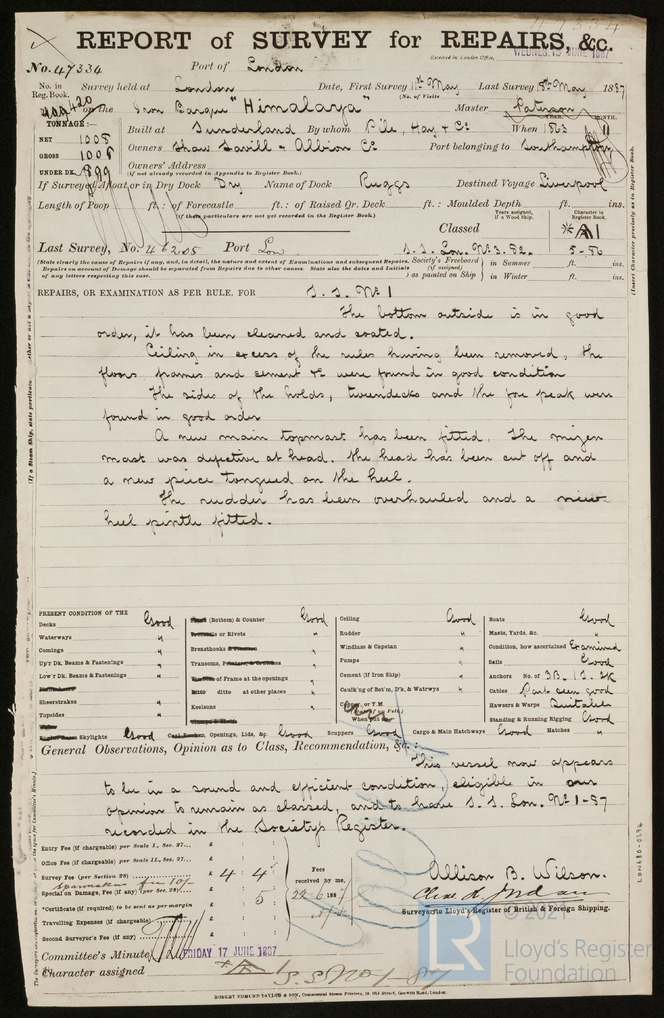 REPORT of SURVEY for REPAIRS, &c.
Received in London Office, WEDNES. 15 JUNE 1887
No. 47334 Port of London
No. in Reg. Book. Survey held at London Date, First Survey 11th May Last Survey 18th May 1887
(No. of Visits)
420 on the Iron Barque "Himalaya" Master Paterson
TONNAGE:—
YEAR. MONTH.
NET 1008 Built at Sunderland By whom Pile, Hay & Co When 1863 11
GROSS 1008 Owners Shaw Savill & Albion Co Port belonging to Southampton
UNDER DK. 899 Owners' Address
(if not already recorded in Appendix to Register Book.)
If Surveyed Afloat or in Dry Dock Dry Name of Dock Ruggs Destined Voyage Liverpool
Length of Poop ft. : of Forecastle ft. : of Raised Qr. Deck ft. : Moulded Depth ft. ins.
(if these particulars are not yet recorded in the Register Book.)
Years assigned, if a Wood Ship. Character in Register Book.
Classed A1
Last Survey, No. 46205 Port Lon. S.S. Lon. No 3. 82. 5-86
(State clearly the cause of Repairs if any, and, in detail, the nature and extent of Examinations and subsequent Repairs.
Repairs on account of Damage should be separated from Repairs due to other causes. State also the dates and Initials
of any letters respecting this case.
Society's Freeboard (if assigned) as painted on Ship in Summer ft. ins.
in Winter ft. ins.
(Insert Character precisely as in Register Book.
REPAIRS, OR EXAMINATION AS PER RULE, FOR S.S. No 1
The bottom outside is in good
order, it has been cleaned and coated.
Ceiling in excess of the rules having been removed, the
floors frames and cement &c were found in good condition
The sides of the holds, tweendecks and the fore peak were
found in good order
A new main topmast has been fitted. The mizen
mast was defective at head. the head has been cut off and
a new piece tongued on the heel.
The rudder has been overhauled and a new
heel pintle fitted.
PRESENT CONDITION OF THE
Decks Good
Waterways "
Comings "
Up'r Dk. Beams & Fastenings "
Low'r Dk. Beams & Fastenings "
Sheerstrakes "
Topsides "
Skylights Good
(Bottom) & Counter Good
or Rivets "
Breasthooks "
Transoms, "
of Frame at the openings "
ditto ditto at other places "
Keelsons "
Openings, Lids, &c. Good
Ceiling Good
Rudder "
Windlass & Capstan "
Pumps "
Cement (if Iron Ship) "
Caulk'ng of Bot'm, D'k, & Watrwys "
or Y.M.
When put on
Scuppers Good
Boats Good
Masts, Yards, &c. "
Condition, how ascertained Examined
Sails Good
Anchors No. of 3B. 1S. 2K
Cables Part seen good
Hawsers & Warps Suitable
Standing & Running Rigging Good
Cargo & Main Hatchways Good Hatches "
General Observations, Opinion as to Class, Recommendation, &c. :
This vessel now appears
to be in a sound and efficient condition, eligible in our
opinion to remain as classed, and to have S.S. Lon. No 1-87
recorded in the Society's Register.
Entry Fee (if chargeable) per Scale I., Sec. 27... £
Office Fee (if chargeable) per Scale II., Sec. 27... £
Survey Fee (per Section 28) £ 4 : 4
Special on Damage, Fee (if any) (per Sec. 28) £
*Certificate (if required) to be sent as per margin £ 5
Travelling Expenses (if chargeable) £
Second Surveyor's Fee (if any) £
Fees received by me,
22-6 1887
Allison B. Wilson.
Surveyor to Lloyd's Register of British & Foreign Shipping.
Committee's Minute FRIDAY 17 JUNE 1887
Character assigned A1 S.S No 1-87
ROBERT EDMUND TAYLOR & SON, Commercial Steam Printers, 19, Old Street, Goswell Road, London.
LON680-0276
© 2021
LR
Lloyd's Register
Foundation